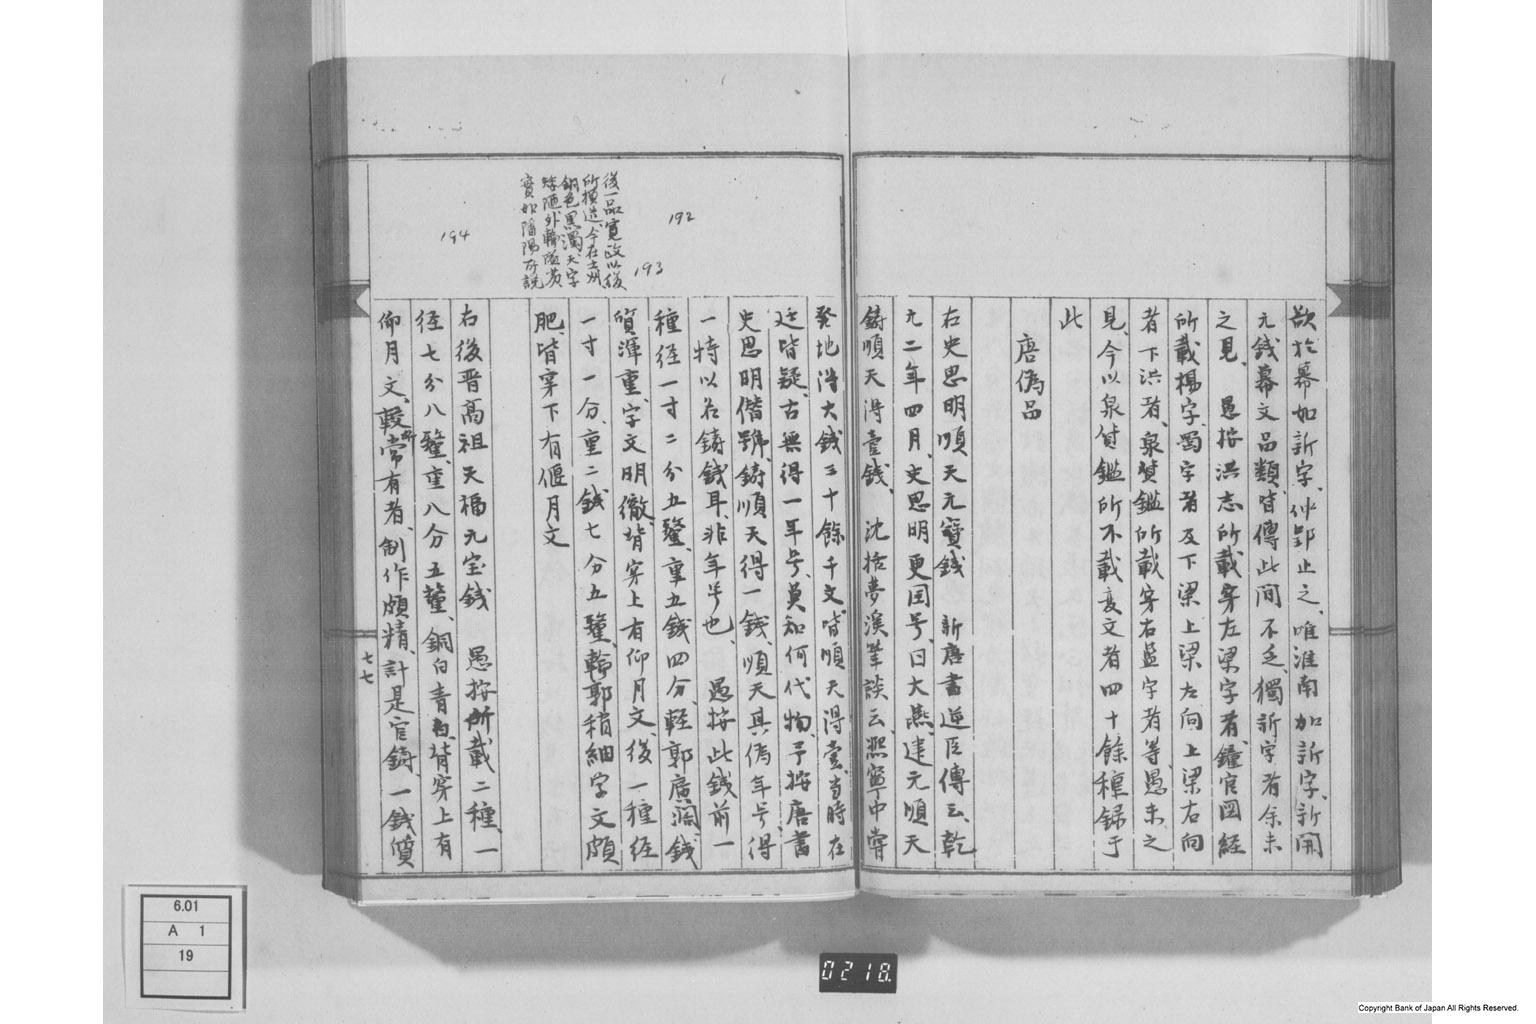 欲於幕如新字、仲郢止之、唯淮南加新字、新開
元錢幕文品類、皆傳此間不乏、獨新字者余未
之見、愚按洪志所載穿左梁字者、鐘官図経
所載楊字、蜀字者及下梁上梁左向上梁右向
者下洪者、泉貨鑑所載穿右益字者等、愚未之
見、今以泉貨鑑所不載変文者四十餘種録于
此
唐偽品
右史思明順天元寶錢 新唐書逆臣傳云、乾
元二年四月、史思明更国号、曰大燕、建元順天
鋳順天得壹錢、沈括夢溪筆談云、熙寧中嘗
發地得大錢三十餘千文、皆順天得壹、當時在
廷皆疑、古無得一年号、莫知何代物、予按唐書
史思明僭號、鋳順天得一錢、順天其偽年号、得
一特以名鋳錢耳、非年号也、愚按此錢前一
種径一寸二分五釐、重五錢四分、輕郭廣濶錢
質渾重、字文明徹、背穿上有仰月文、後一種径
一寸一分、重二錢七分五釐、輪郭稍細字文頗
肥、皆穿下有偃月文
右後晋高祖天福元宝錢 愚按所載二種、一
径七分八釐、重八分五釐、銅白青色、背穿上有
仰月文、較常有者、制作頗精、計是官鋳一錢償
後一品寛政以後
所模造、今在土州
銅色黒濁、天字
矮陋外輪
寶如 所説
192
193
194
七七
6.01
A 1
19
0218.
Copyright Bank of Japan All Rights Reserved.